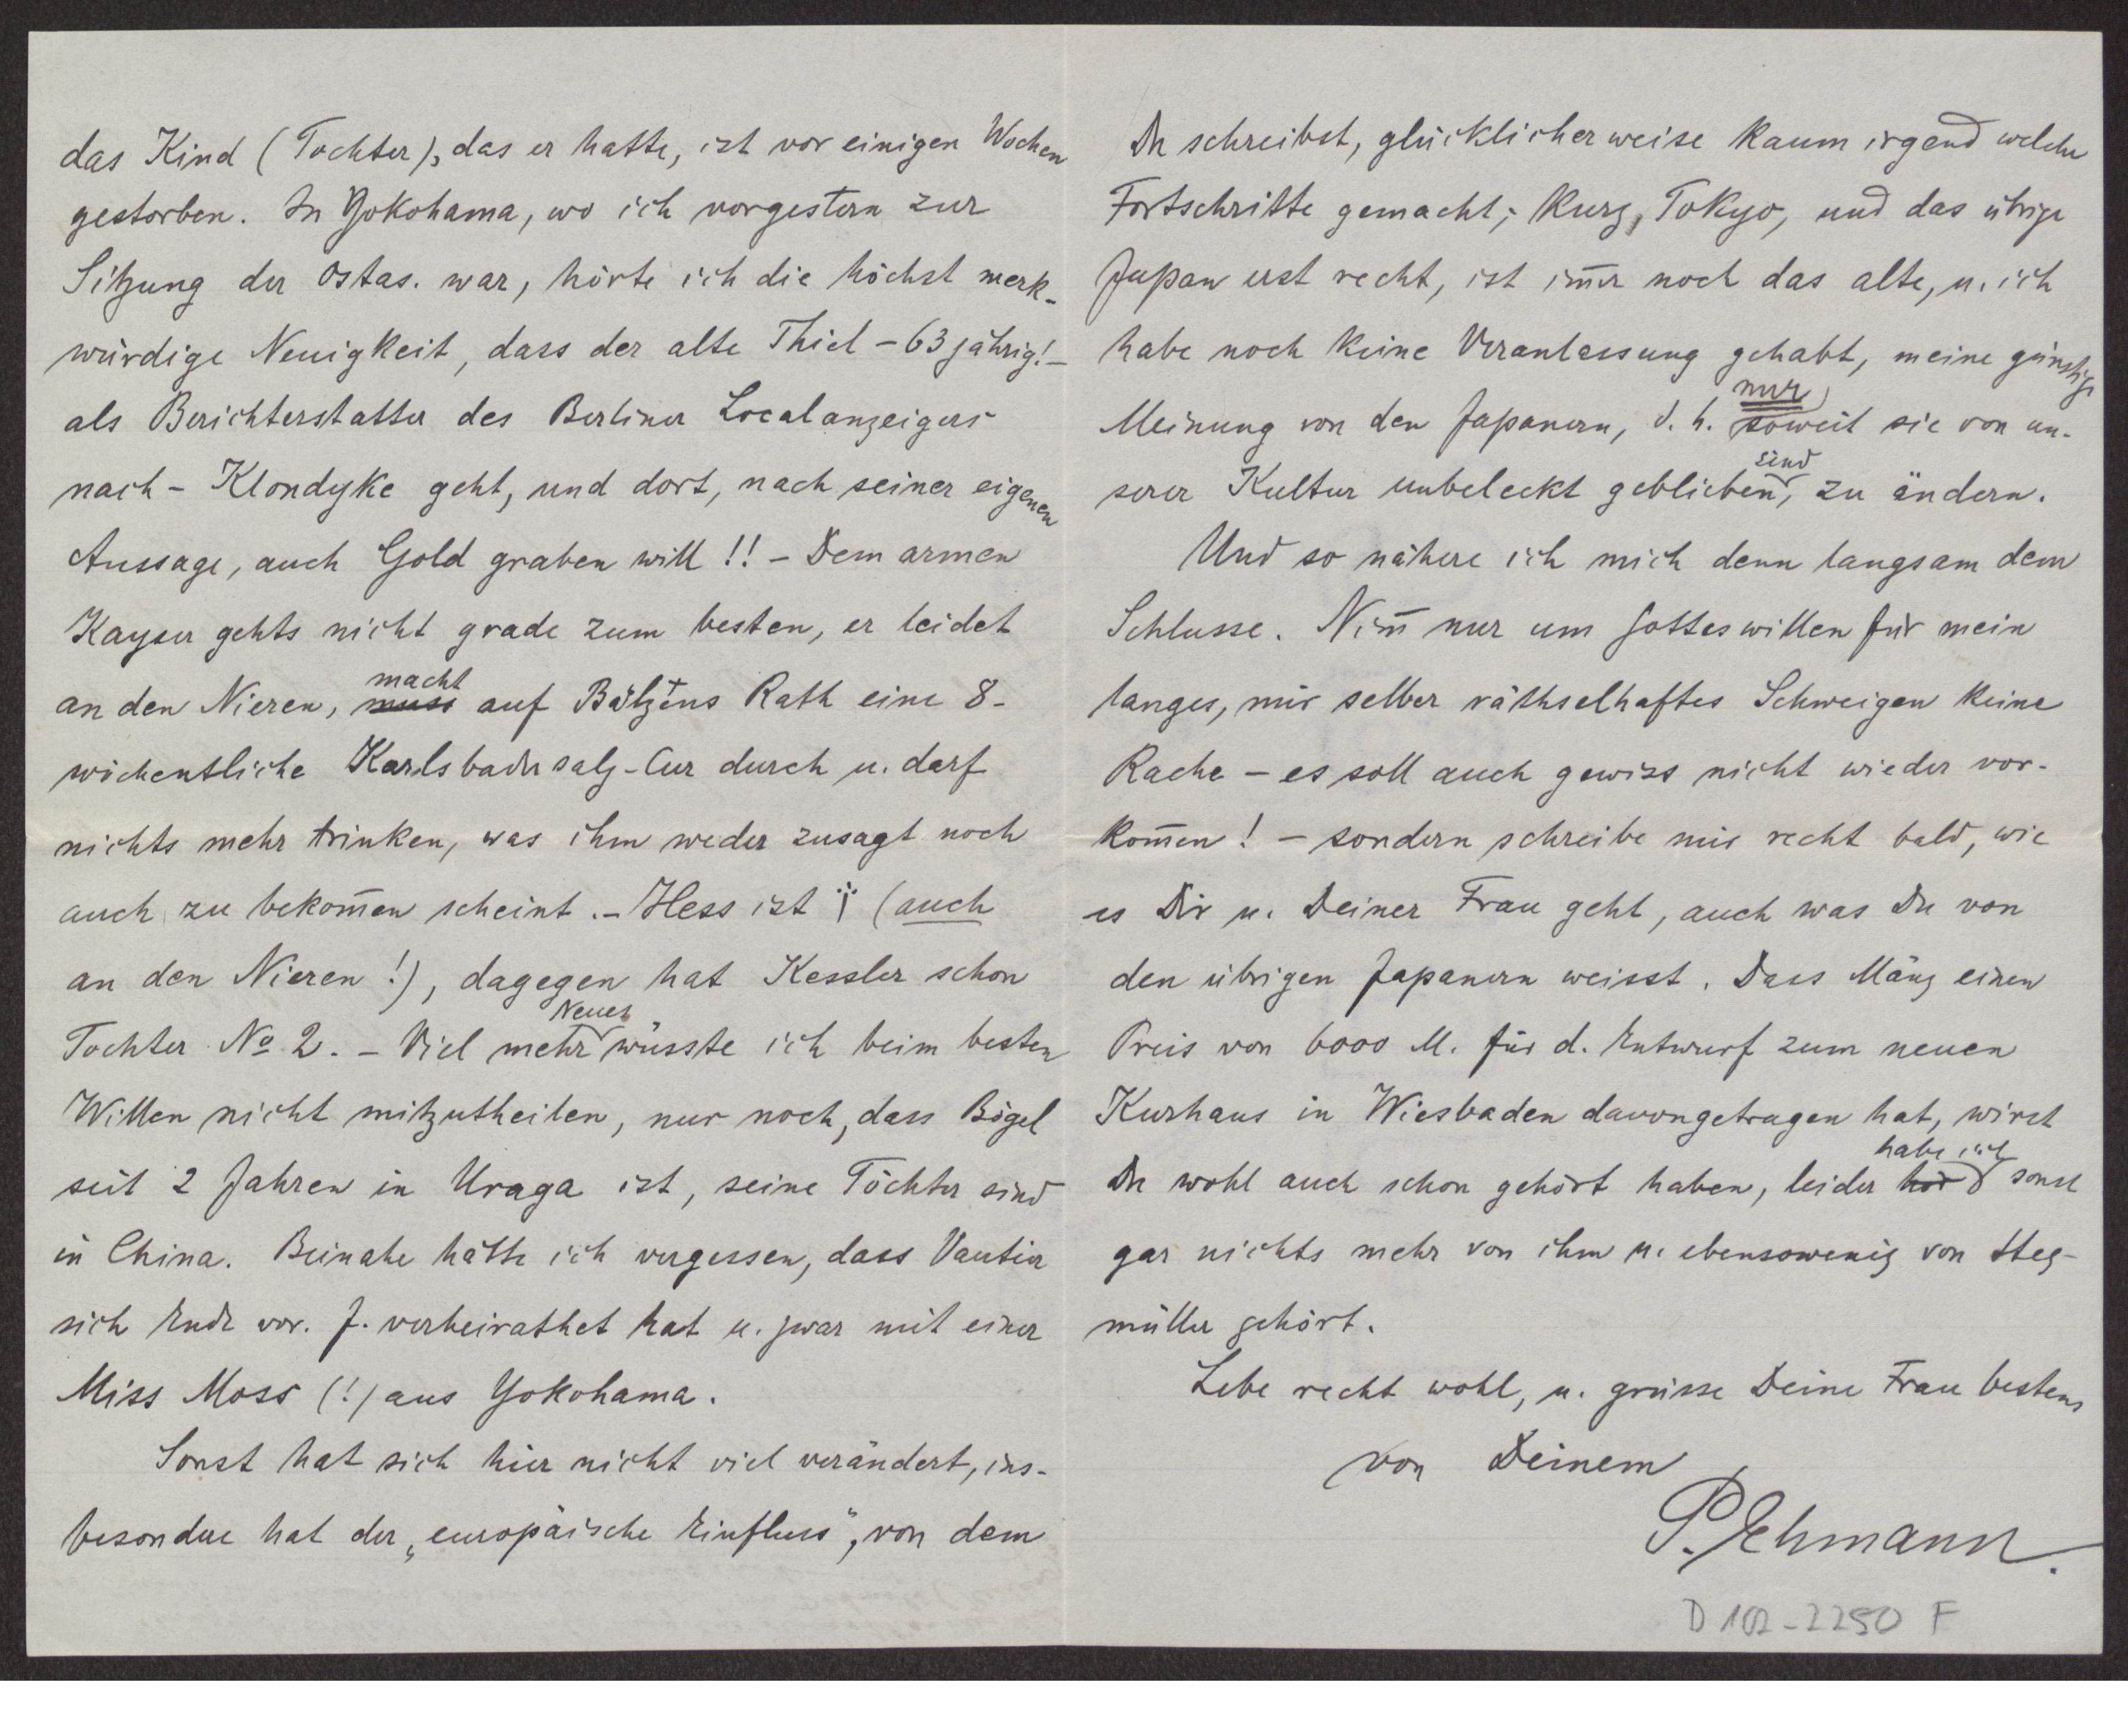 das Kind (Tochter), das er hatte, ist vor einigen Wochen
gestorben. In Yokohama, wo ich vorgestern zur
Sitzung der Ostas. war, hörte ich die höchst merk-
würdige Neuigkeit, dass der alte Thiel – 63 jährig! –
als Berichterstatter des Berliner Localanzeigers
nach – Klondyke geht, und dort, nach seiner eigenen
Aussage, auch Gold graben will!! – Dem armen
Kayser gehts nicht grade zum besten, er leidet
an den Nieren, muss macht auf Bälzens Rath eine 8-
wöchentliche Karlsbadersalz-Cur durch u. darf
nichts mehr trinken, was ihm weder zusagt noch
auch zu bekom̅en scheint. – Hess ist † (auch
an den Nieren!), dagegen hat Kessler schon
Tochter No 2. – Viel mehr Neues wüsste ich beim besten
Willen nicht mitzutheilen, nur noch, dass Bögel
seit 2 Jahren in Uraga ist, seine Töchter sind
in China. Beinahe hätte ich vergessen, dass Vautier
sich Ende vor. J. verheirathet hat u. zwar mit einer
Miss Moss (!) aus Yokohama.
Sonst hat sich hier nicht viel verändert, ins-
besondere hat der „europäische Einfluss“, von dem
Du schreibst, glücklicherweise kaum irgend welche
Fortschritte gemacht; kurz, Tokyo, und das übrige
Japan erst recht, ist im̅er noch das alte, u. ich
habe noch keine Veranlassung gehabt, meine günstige
Meinung von den Japanern, d. h. nur soweit sie von un-
serer Kultur unbeleckt geblieben sind, zu ändern.
Und so nähere ich mich denn langsam dem
Schlusse. Nim̅ nur um Gotteswillen für mein
langes, mir selber räthselhaftes Schweigen keine
Rache – es soll auch gewiss nicht wieder vor-
kom̅en! – sondern schreibe mir recht bald, wie
es Dir u. Deiner Frau geht, auch was Du von
den übrigen Japanern weisst. Dass Mänz einen
Preis von 6000 M. für d. Entwurf zum neuen
Kurhaus in Wiesbaden davongetragen hat, wirst
Du wohl auch schon gehört haben, leider hör habe ich sonst
gar nichts mehr von ihm u. ebensowenig von Steg-
müller gehört.
Lebe recht wohl, u. grüsse Deine Frau bestens
von Deinem
P. Ehmann.
D 102-2250 F